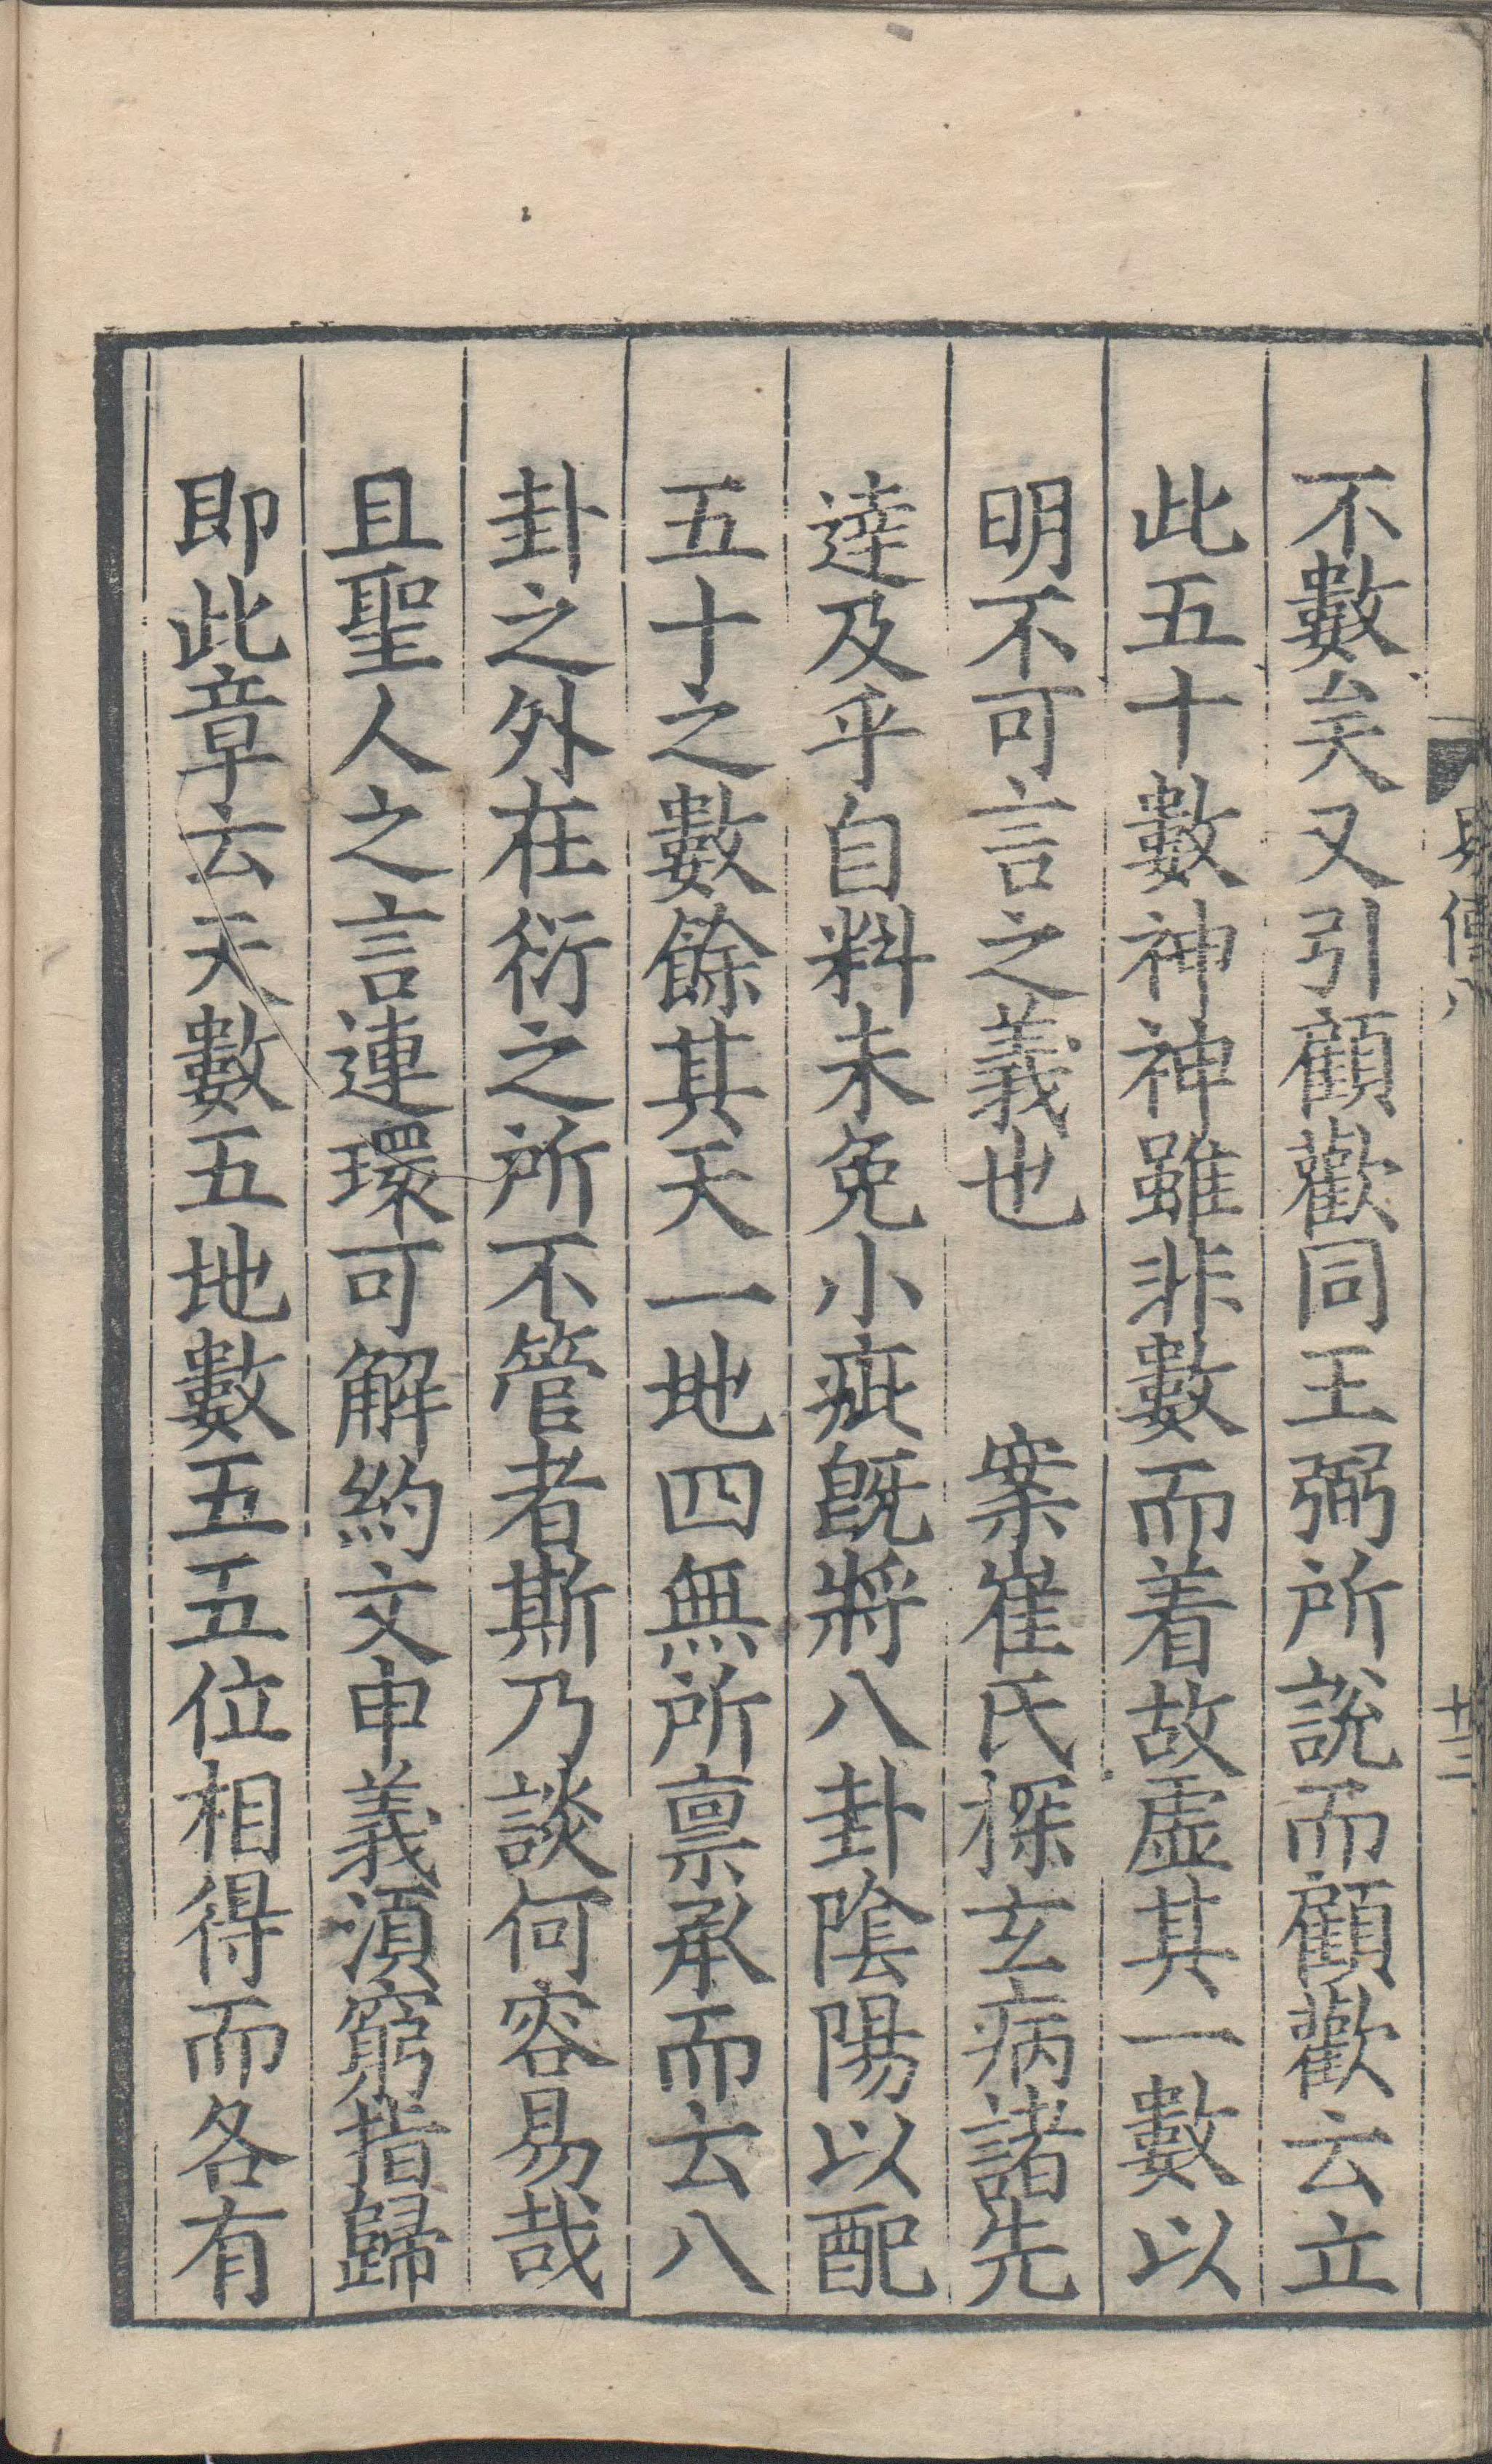 不數矣又引顧歡同王弼所說而顧歡云立
此五十數神神雖非數而着故虛其一數以
明不可言之義也　案崔氏探玄病諸先
達及乎自料未免小疵旣將八卦陰陽以配
五十之數餘其天一地四無所禀承而云八
卦之外在衍之所不管者斯乃談何容易哉
且聖人之言連環可解約文申義湏窮指歸
即此章云天數五地數五五位相得而各有
十三